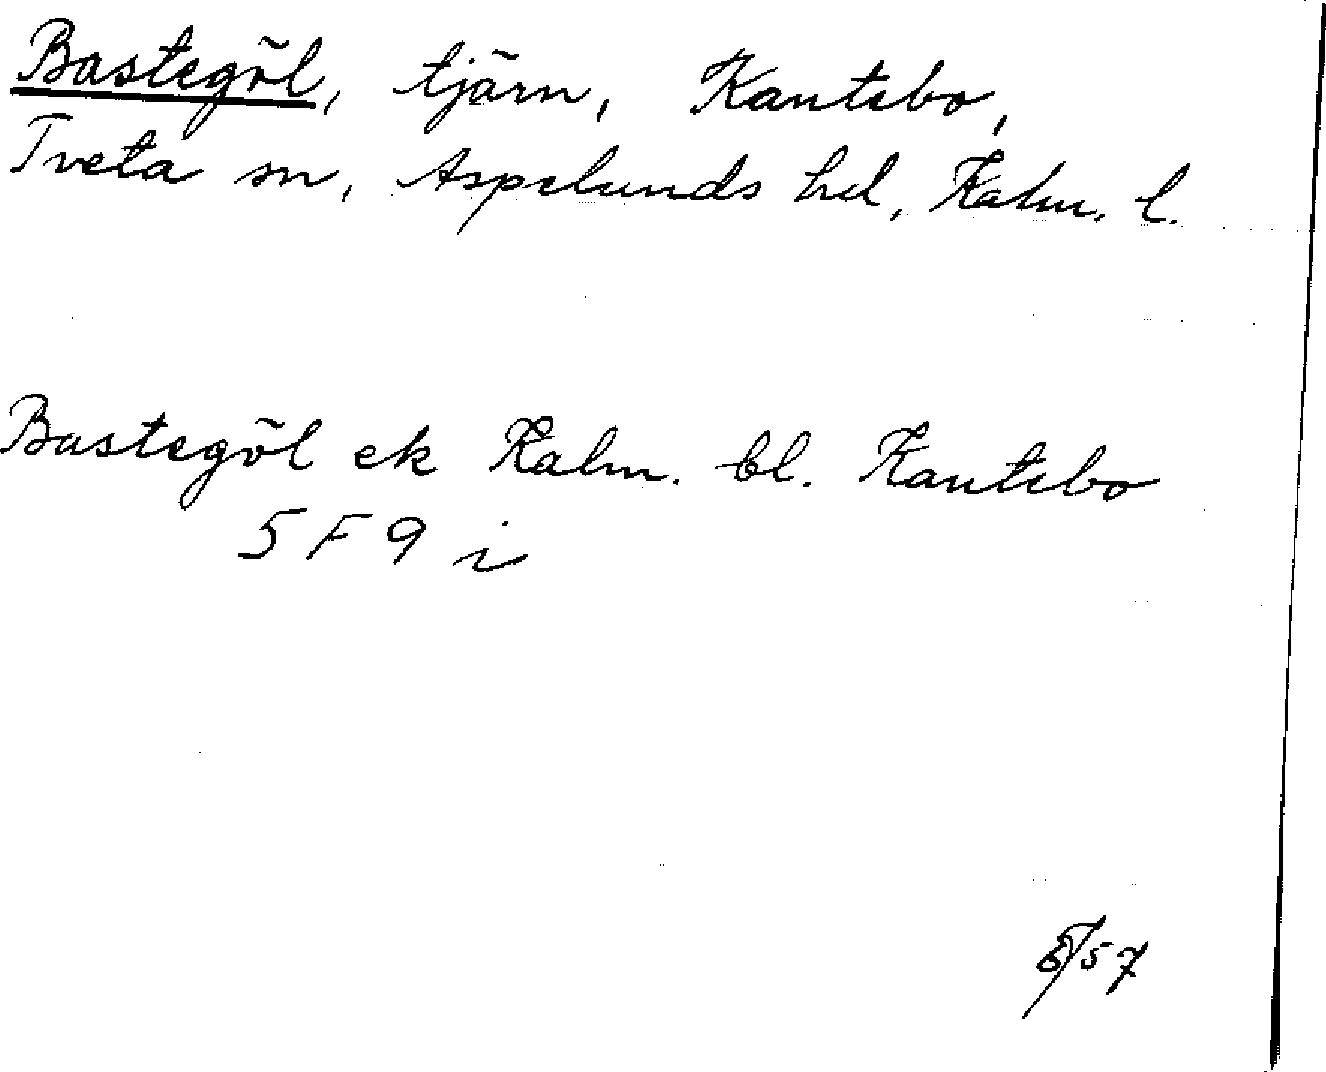 Bastegöl, tjärn, Kantebo,
Tveta sn, Aspelands hd, Kalm. l.
Bastegöl ek Kalm. bl. Kantebo
5F9i